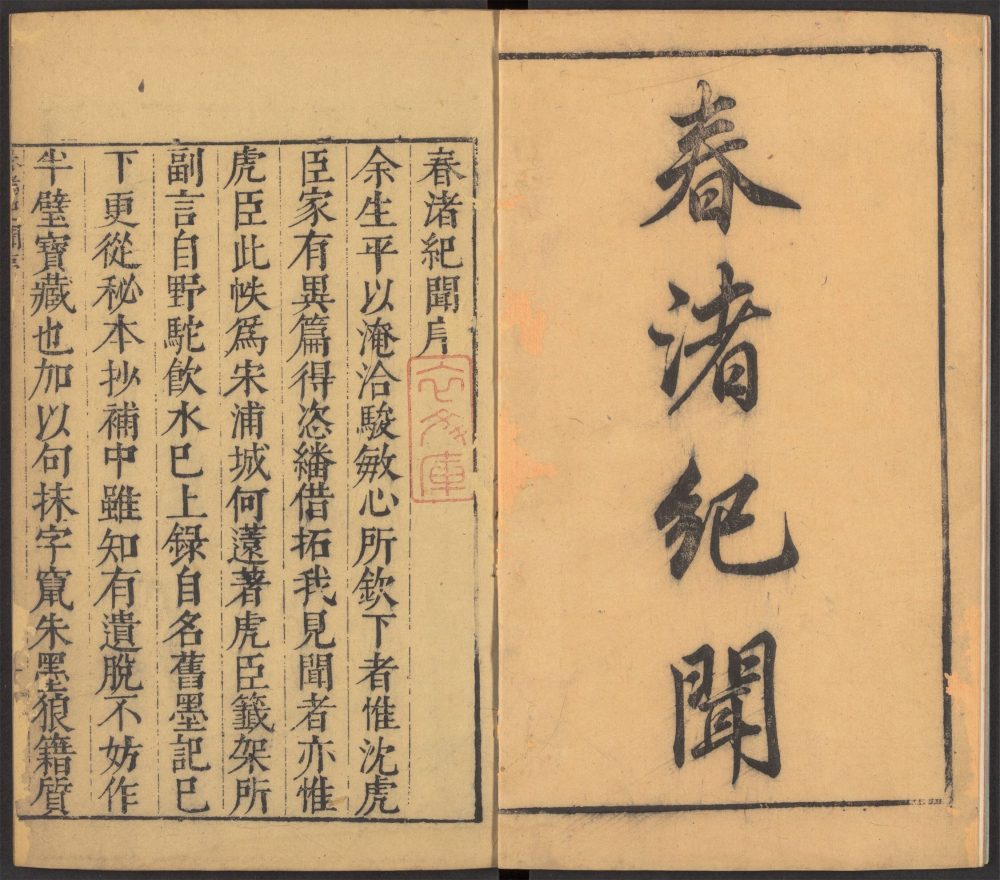 春渚紀聞
春渚紀聞序
余生平以淹洽駿敏心所欽下者惟沈虎
臣家有異篇得恣繙借拓我見聞者亦惟
虎臣此帙爲宋浦城何薳著虎臣籤架所
副言自野駝飲水巳上錄自名舊墨記巳
下更從秘本抄補中雖知有遺脫不妨作
半璧寶藏也加以句抹字竄朱黑狼籍質
文庫